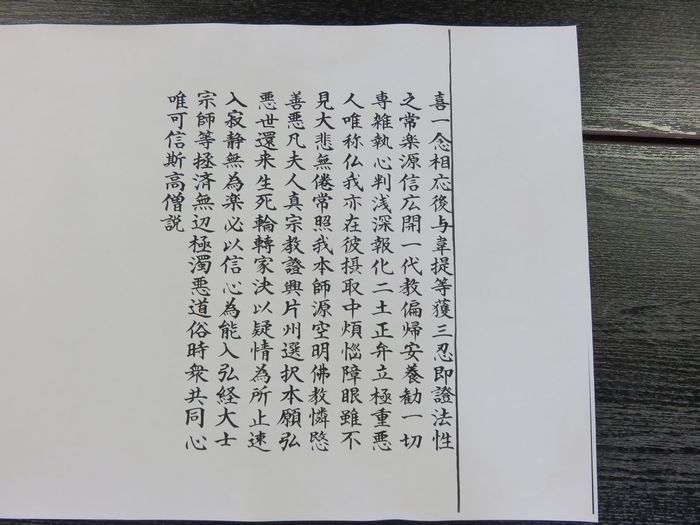 喜一念相応後与韋提等獲三忍即證法性
之常楽源信広開一代教偏帰安養勧一切
専雑執心判浅深報化二土正弁立極重悪
人唯称仏我亦在彼摂取中煩惱障眼雖不
見大悲無倦常照我本師源空明佛教憐愍
善悪凡夫人真宗教證興片州選択本願弘
悪世還来生死輪轉家決以疑情為所止速
入寂静無為楽必以信心為能入弘経大士
宗師等拯済無辺極濁悪道俗時衆共同心
唯可信斯高僧説